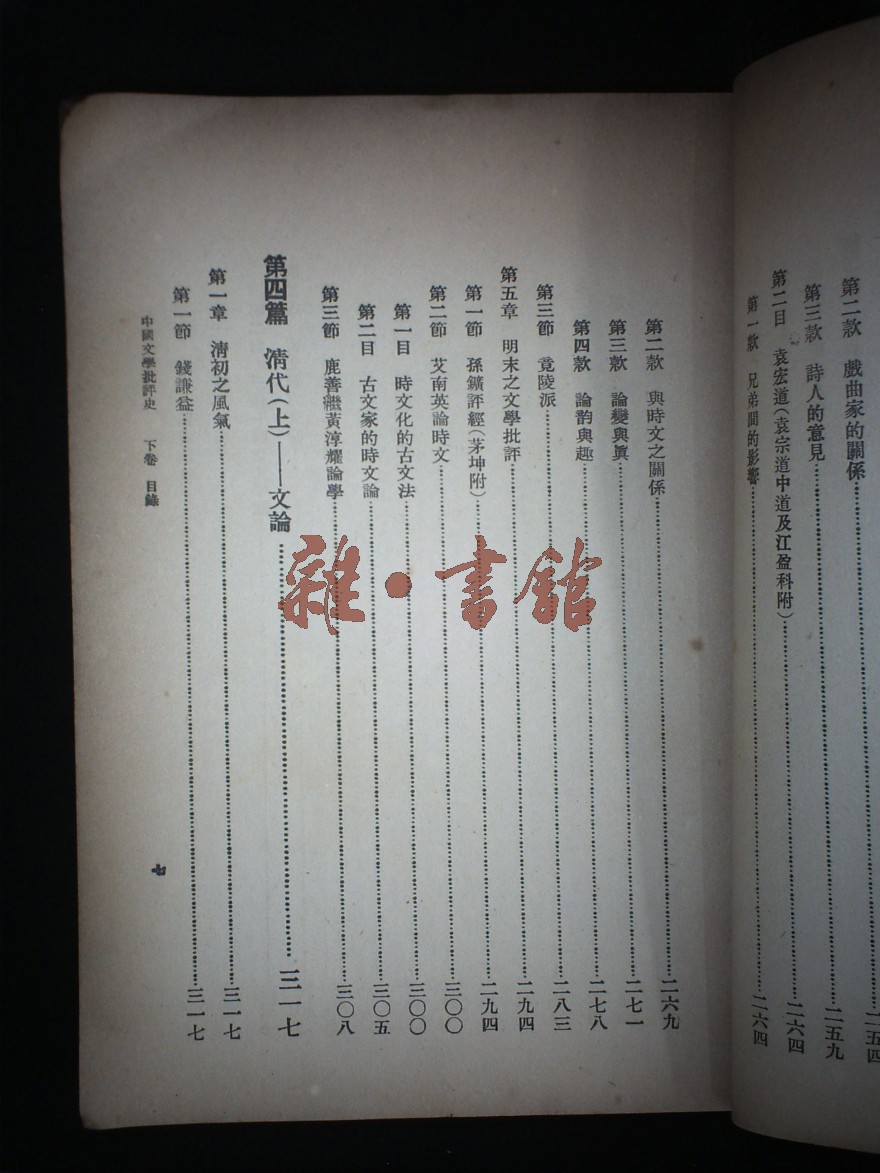 第二款　戲曲家的關係……二五四
第三款　詩人的意見……二五九
第二目　袁宏道(袁宗道中道及江盈科附)……二六四
第一款　兄弟間的影響……二六四
第二款　與時文之關係……二六九
第三款　論變與眞……二七一
第四款　論韵與趣……二七八
第三節　竟陵派……二八三
第五章　明末之文學批評……二九四
第一節　孫鑛評經(茅坤附)……二九四
第二節　艾南英論時文……三〇〇
第一目　時文化的古文法……三〇〇
第二目　古文家的時文論……三〇五
第三節　鹿善繼黃淳耀論學……三〇八
第四篇　淸代(上)——文論……三一七
第一章　淸初之風氣……三一七
第一節　錢謙益……三一七
中國文學批評史　下卷　目錄
七
雜·書館